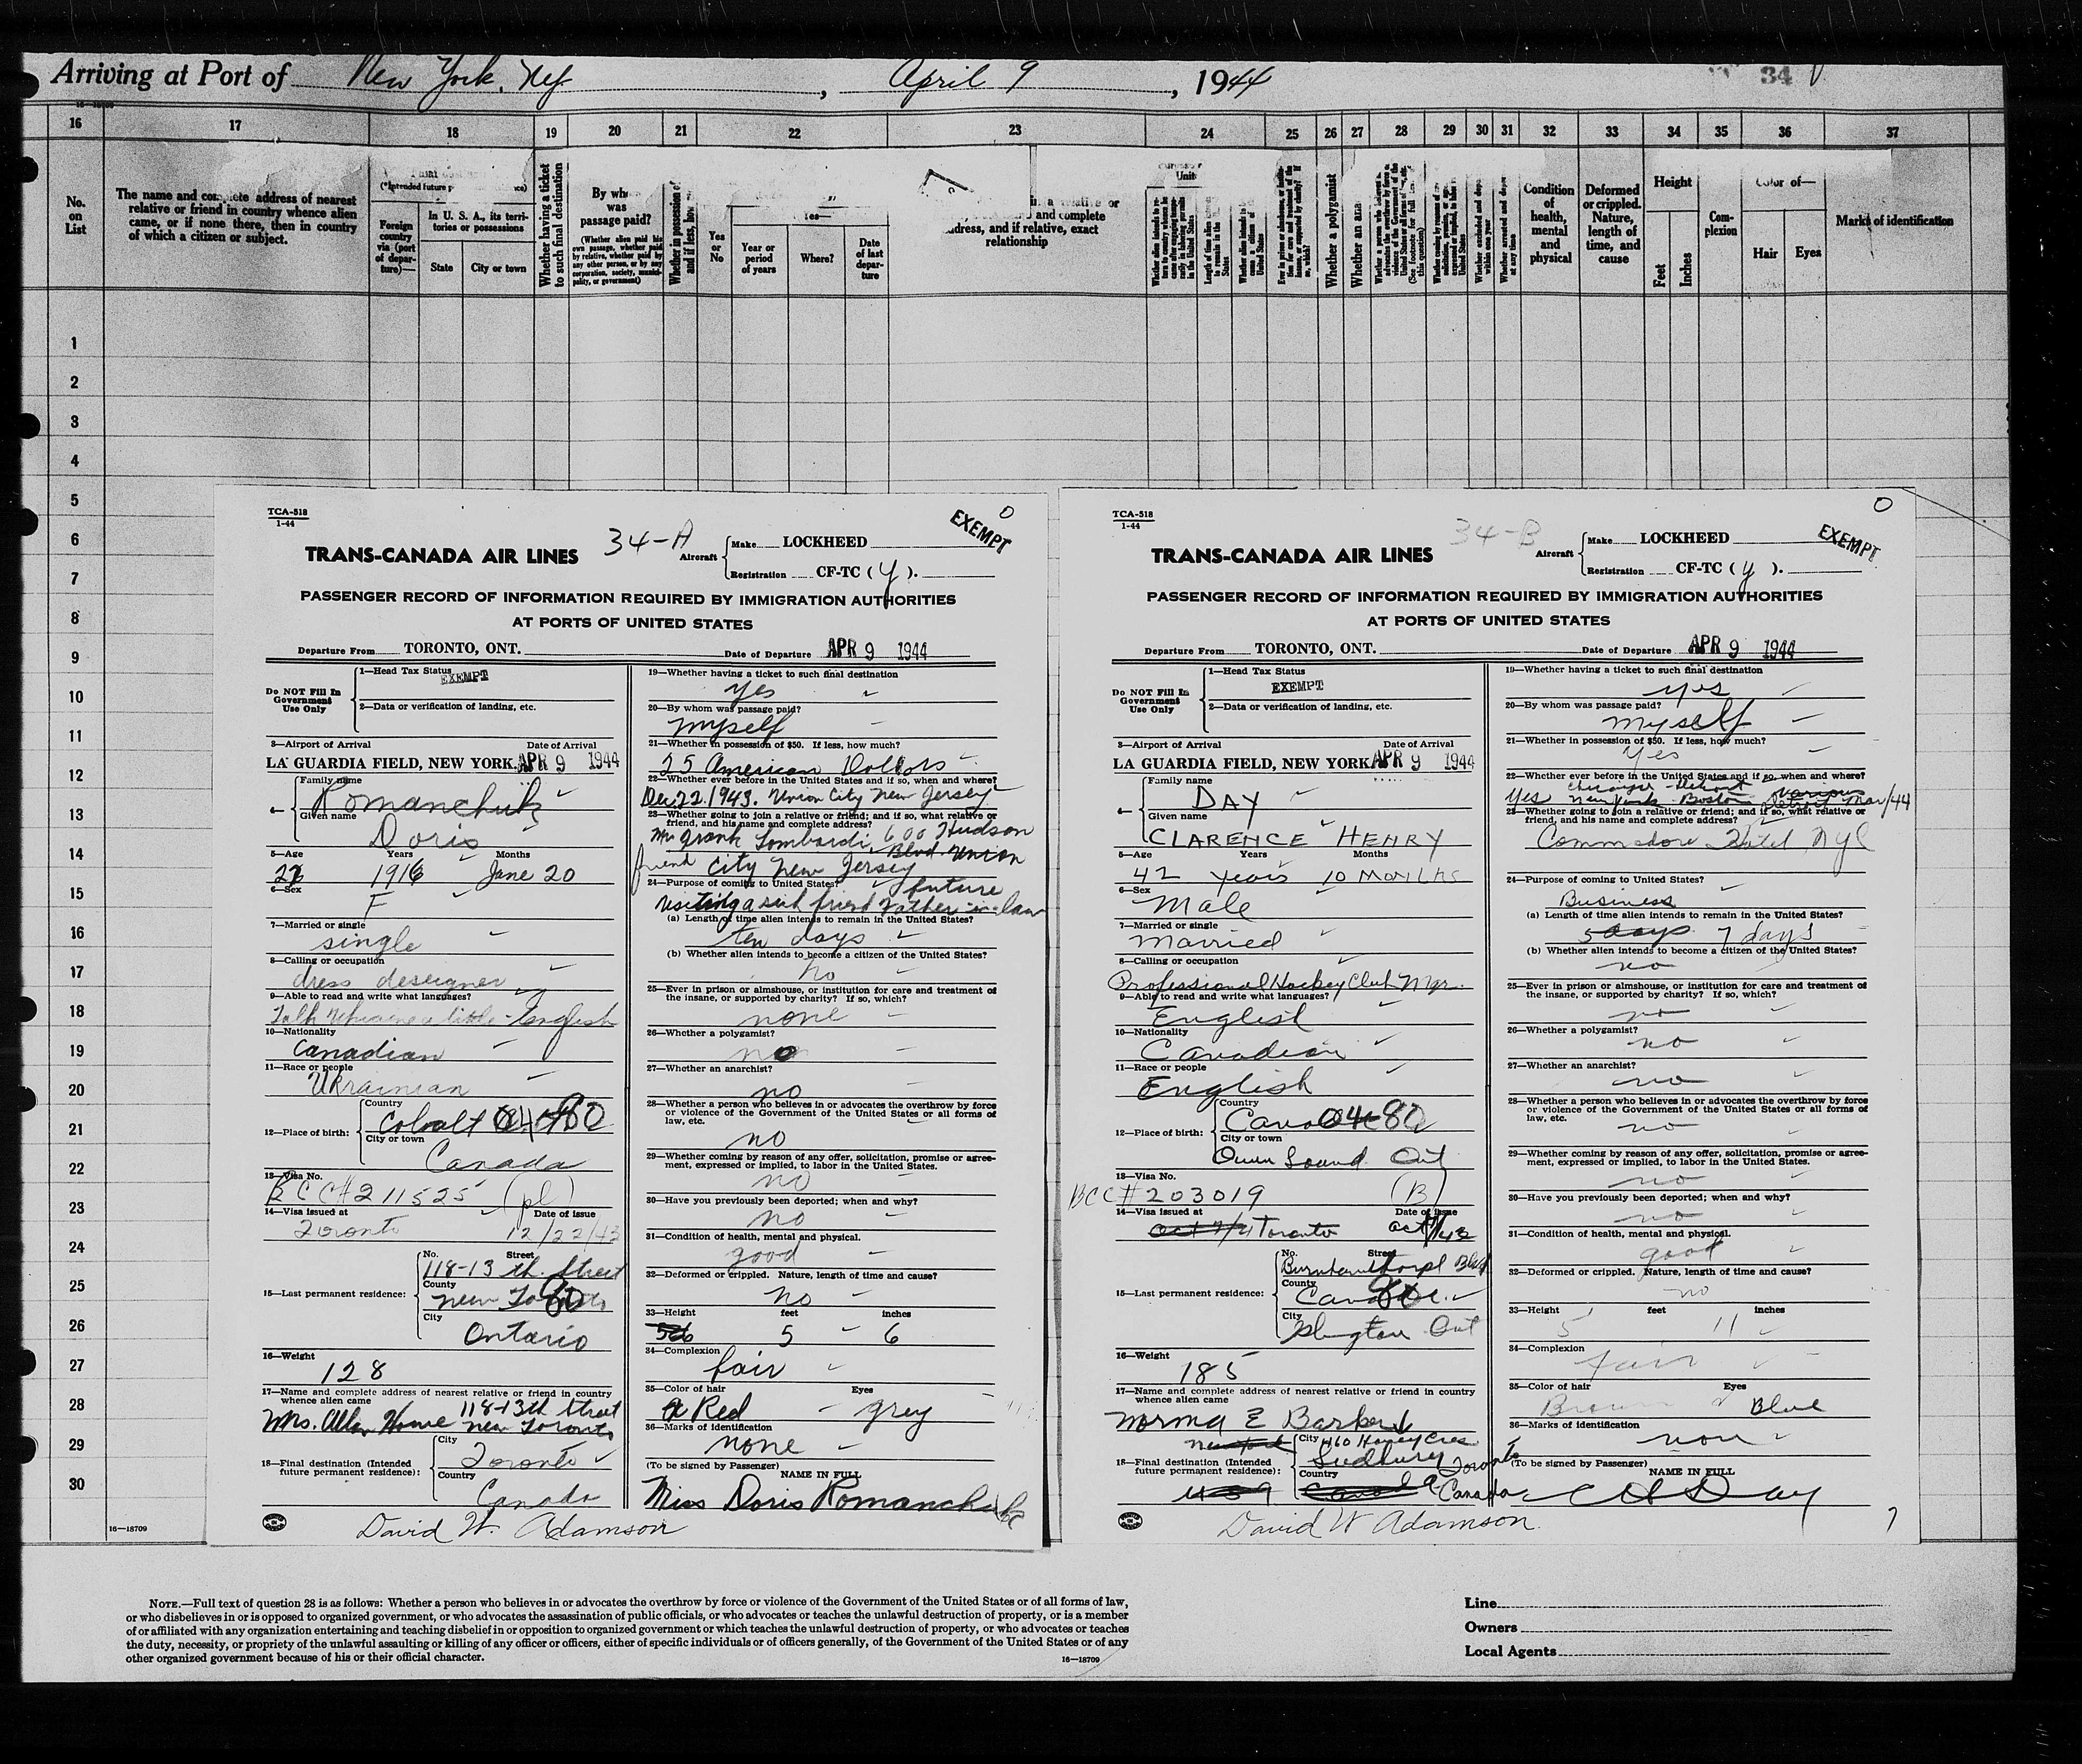 Arriving at Port of New York, Ny , April 9 , 1944 34
16 17 18 19 20 21 22 23 24 25 26 27 28 29 30 31 32 33 34 35 36 37
No. on List
The name and complete address of nearest
relative or friend in country whence alien
came, or if none there, then in country
of which a citizen or subject.
(*Intended future
Foreign country via (port of departure)—
In U. S. A., its territories or possessions
State
City or town
Whether having a ticket to such final destination
By whom was passage paid?
(Whether alien paid his own passage, whether paid by relative, whether paid by any other person, or by any corporation, society, municipality, or government)
Whether in possession of
and if less, how
Yes or No
Yes—
Year or period of years
Where?
Date of last departure
and complete
address, and if relative, exact
relationship
Whether a polygamist
Whether an ana
Condition of health, mental and physical
Deformed or crippled. Nature, length of time, and cause
Height
Feet
Inches
Complexion
Color of—
Hair
Eyes
Marks of identification
1
2
3
4
5
6
7
8
9
10
11
12
13
14
15
16
17
18
19
20
21
22
23
24
25
26
27
28
29
30
16—18709
TCA-518
1-44
34-A
EXEMPT
TRANS-CANADA AIR LINES
Aircraft
Make LOCKHEED
Registration CF-TC ( Y ).
PASSENGER RECORD OF INFORMATION REQUIRED BY IMMIGRATION AUTHORITIES
AT PORTS OF UNITED STATES
Departure From TORONTO, ONT. Date of Departure APR 9 1944
Do NOT Fill In Government Use Only
1—Head Tax Status
EXEMPT
2—Data or verification of landing, etc.
3—Airport of Arrival Date of Arrival
LA GUARDIA FIELD, NEW YORK. APR 9 1944
4—
Family name
Romanchuk
Given name
Doris
5—Age Years Months
27 1916 June 20
6—Sex
F
7—Married or single
single
8—Calling or occupation
dress deseigner
9—Able to read and write what languages?
Talk Ukraine a little - English
10—Nationality
Canadian
11—Race or people
Ukrainian
12—Place of birth:
Country
Cobalt Ont 80
City or town
Canada
13—Visa No.
BCC# 211525 (pl)
14—Visa issued at Date of issue
Toronto 12/22/43
15—Last permanent residence:
No. Street
118-13 th. Street
County
New Toronto 80
City
Ontario
16—Weight
128
17—Name and complete address of nearest relative or friend in country
whence alien came 118-13th Street
Mrs. Allan Howe New Toronto
18—Final destination (Intended
future permanent residence):
City
Toronto
Country
Canada
David W. Adamson
19—Whether having a ticket to such final destination
yes
20—By whom was passage paid?
myself
21—Whether in possession of $50. If less, how much?
25 American Dollars
22—Whether ever before in the United States and if so, when and where?
Dec. 22. 1943. Union City New Jersey
23—Whether going to join a relative or friend; and if so, what relative or
friend, and his name and complete address?
Mr Frank Lombardi, 600 Hudson
Blvd. Union
friend City New Jersey
24—Purpose of coming to United States? future
visiting a sick friend Father-in-law
(a) Length of time alien intends to remain in the United States?
ten days
(b) Whether alien intends to become a citizen of the United States?
no
25—Ever in prison or almshouse, or institution for care and treatment of
the insane, or supported by charity? If so, which?
none
26—Whether a polygamist?
no
27—Whether an anarchist?
no
28—Whether a person who believes in or advocates the overthrow by force
or violence of the Government of the United States or all forms of
law, etc.
no
29—Whether coming by reason of any offer, solicitation, promise or agreement, expressed or implied, to labor in the United States.
no
30—Have you previously been deported; when and why?
no
31—Condition of health, mental and physical.
good
32—Deformed or crippled. Nature, length of time and cause?
no
33—Height feet inches
5 6
34—Complexion
fair
35—Color of hair Eyes
Red grey
36—Marks of identification
none
(To be signed by Passenger) NAME IN FULL
Miss Doris Romanchuk
TCA-518
1-44
34-B
EXEMPT
TRANS-CANADA AIR LINES
Aircraft
Make LOCKHEED
Registration CF-TC ( Y ).
PASSENGER RECORD OF INFORMATION REQUIRED BY IMMIGRATION AUTHORITIES
AT PORTS OF UNITED STATES
Departure From TORONTO, ONT. Date of Departure APR 9 1944
Do NOT Fill In Government Use Only
1—Head Tax Status
EXEMPT
2—Data or verification of landing, etc.
3—Airport of Arrival Date of Arrival
LA GUARDIA FIELD, NEW YORK. APR 9 1944
4—
Family name
DAY
Given name
CLARENCE HENRY
5—Age Years Months
42 years 10 Months
6—Sex
Male
7—Married or single
Married
8—Calling or occupation
Professional Hockey Club Mgr.
9—Able to read and write what languages?
English
10—Nationality
Canadian
11—Race or people
English
12—Place of birth:
Country
Canada 80
City or town
Owen Sound Ont
13—Visa No.
BCC# 203019 (B)
14—Visa issued at Date of issue
Toronto
15—Last permanent residence:
No. Street
Burnhamthorpe Blvd
County
Canada
City
Islington Ont
16—Weight
185
17—Name and complete address of nearest relative or friend in country
whence alien came
Norma E Barker
18—Final destination (Intended
future permanent residence):
City
Sudbury Toronto
Country
Canada
David W Adamson
19—Whether having a ticket to such final destination
yes
20—By whom was passage paid?
myself
21—Whether in possession of $50. If less, how much?
Yes
22—Whether ever before in the United States and if so, when and where?
Chicago - Detroit various
Yes New York Boston Detroit Mar/44
23—Whether going to join a relative or friend; and if so, what relative or
friend, and his name and complete address?
Commodore Hotel NYC
24—Purpose of coming to United States?
Business
(a) Length of time alien intends to remain in the United States?
5 days 7 days
(b) Whether alien intends to become a citizen of the United States?
no
25—Ever in prison or almshouse, or institution for care and treatment of
the insane, or supported by charity? If so, which?
no
26—Whether a polygamist?
no
27—Whether an anarchist?
no
28—Whether a person who believes in or advocates the overthrow by force
or violence of the Government of the United States or all forms of
law, etc.
no
29—Whether coming by reason of any offer, solicitation, promise or agreement, expressed or implied, to labor in the United States.
no
30—Have you previously been deported; when and why?
no
31—Condition of health, mental and physical.
good
32—Deformed or crippled. Nature, length of time and cause?
no
33—Height feet inches
5 11
34—Complexion
fair
35—Color of hair Eyes
Brown Blue
36—Marks of identification
non
(To be signed by Passenger) NAME IN FULL
C H Day
NOTE.—Full text of question 28 is as follows: Whether a person who believes in or advocates the overthrow by force or violence of the Government of the United States or of all forms of law,
or who disbelieves in or is opposed to organized government, or who advocates the assassination of public officials, or who advocates or teaches the unlawful destruction of property, or is a member
of or affiliated with any organization entertaining and teaching disbelief in or opposition to organized government or which teaches the unlawful destruction of property, or who advocates or teaches
the duty, necessity, or propriety of the unlawful assaulting or killing of any officer or officers, either of specific individuals or of officers generally, of the Government of the United States or of any
other organized government because of his or their official character.
16—18709
Line
Owners
Local Agents